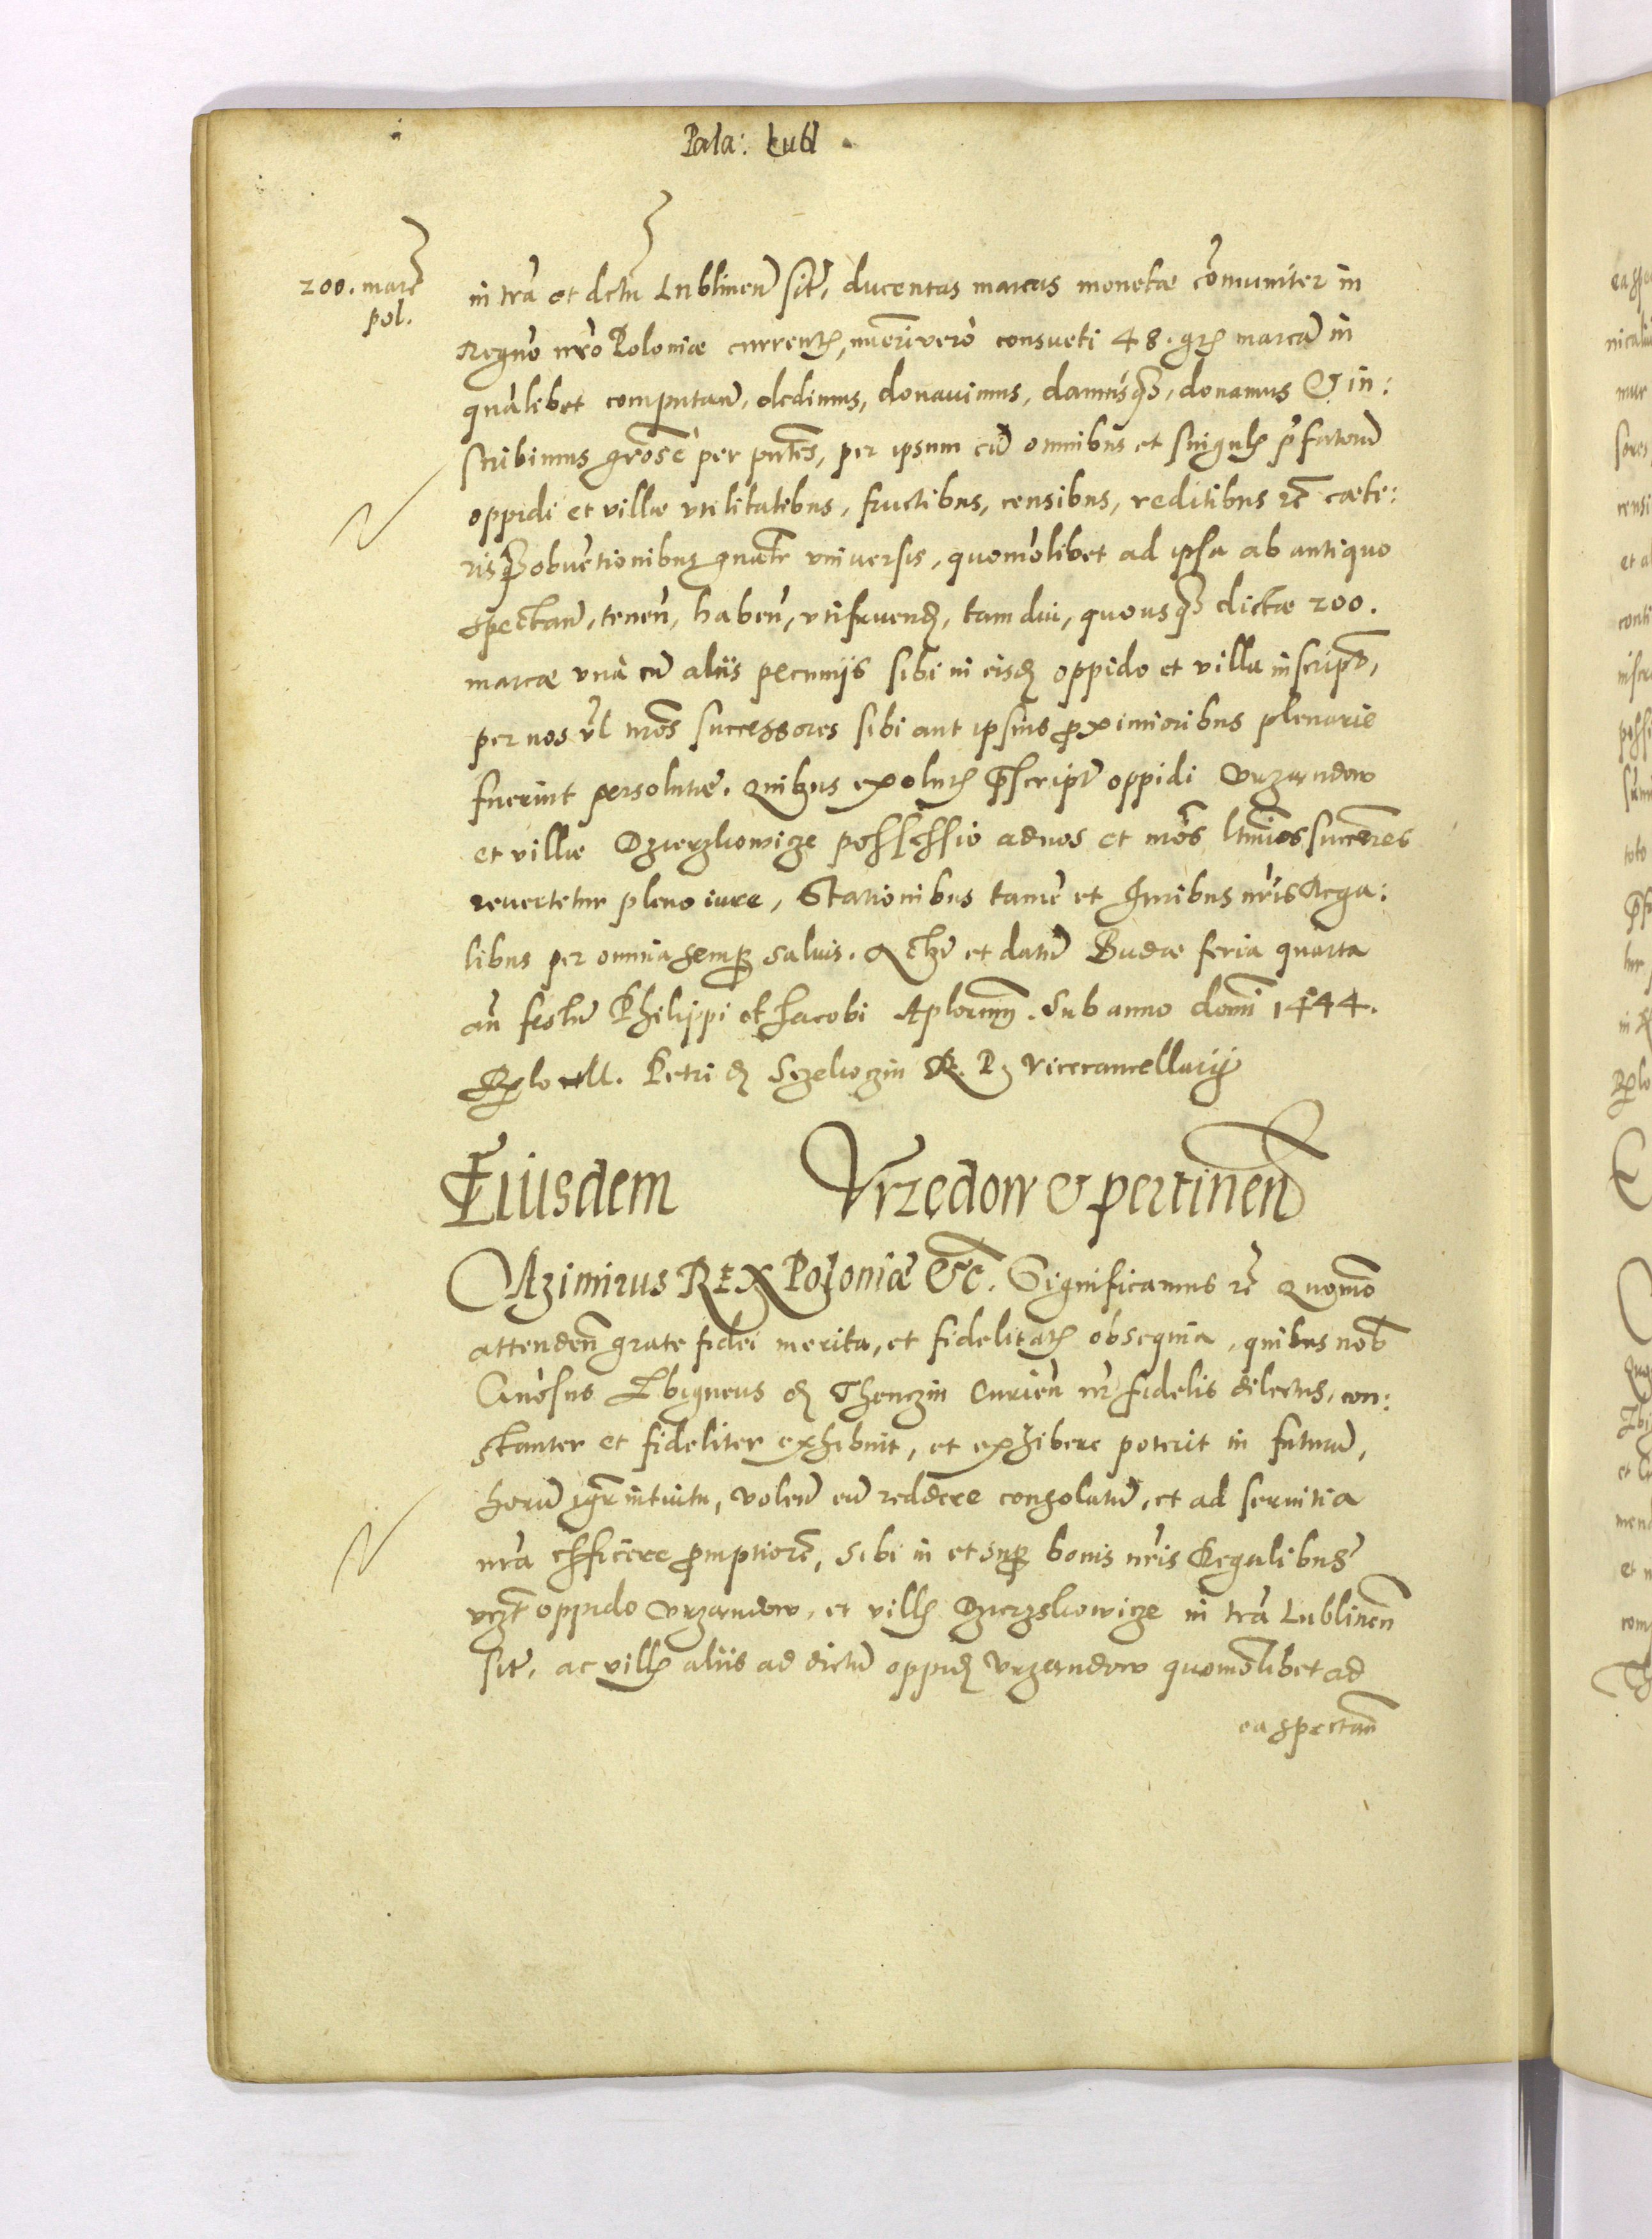 Pala: Lubl
200. marc
pol.
in tra et dctu Lublinen sit, ducentas marcas monetae comuniter in
Regno nro Poloniae currentis, numeri vero consueti 48. gros marcam in
qualibet computan, dedimus, donavimus, damusq3, donamus & in:
scribimus grose per pntes, per ipsum cu omnibus et singulis pfatorum
oppidi et villae utilitatibus, fructibus, censibus, reditibus et caete:
risq3 obventionibus gnatr universis, quomolibet ad ipsa ab antiquo
spectan, tenen, haben, utifruend, tam diu, quousq3 dictae 200.
marcae una cu aliis pecuniis sibi in eisd oppido et villa inscript,
per nos vl nros successores sibi aut ipsius proximioribus plenarie
fuerint persolutae. Quibus exolutis pscripti oppidi Urzandow
et villae Dzierzkowicze possessio ad nos et nros ltimos succeres
revertetur pleno iure, Stationibus tame et Iuribus nris Rega:
libus per omnia semp salvis. Actu et datu Budae feria quarta
an festu Philippi et Jacobi Aplorum. Sub anno domi 1444.
Rlo M. Petri d Sczekoczin R. P. Vicecancellarii
Eiusdem Urzedow & pertinen
CAzimirus REX Poloniae &c. Significamus et Quomo
attenden grate fidei merita, et fidelitatis obsequia, quibus nob
Gnosus Sbigneus d Thenczin Curien nr fidelis dilectus, con:
stanter et fideliter exhibuit, et exhibere poterit in futurum,
horu igr intuitu, volen eu reddere consolatu, et ad servitia
nra efficere promptiore, sibi in et sup bonis nris Regalibus
vzt oppido Urzandow, et villis Dzierzkowicze in tra Lublinen
sit, ac villis aliis ad dictu oppid Urzandow quomolibet ad
ea spectan